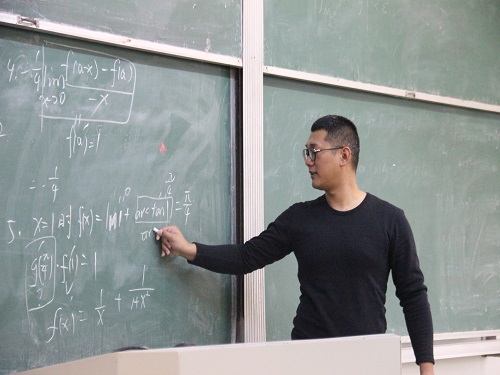 4. -1/4 lim x→0 f(a-x)-f(a) / -x
f'(a)=1
= -1/4
5. x=1时 f(x)=ln1+arctan1=π/4
g'(π/4)·f'(1)=1
f'(x)=1/x+1/1+x²